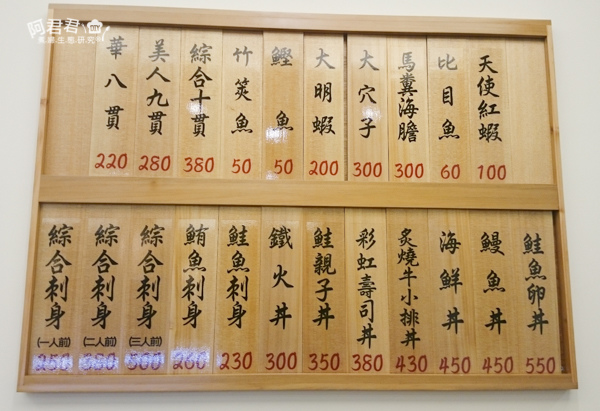 阿君君
天使紅蝦
100
比目魚
60
馬糞海膽
300
大穴子
300
大明蝦
200
鰹魚
50
竹筴魚
50
綜合十貫
380
美人九貫
280
華八貫
220
鮭魚卵丼
550
鰻魚丼
450
海鮮丼
450
炙燒牛小排丼
430
彩虹壽司丼
380
鮭親子丼
350
鐵火丼
300
鮭魚刺身
230
鮪魚刺身
260
綜合刺身
(三人前)
綜合刺身
(二人前)
綜合刺身
(一人前)
250